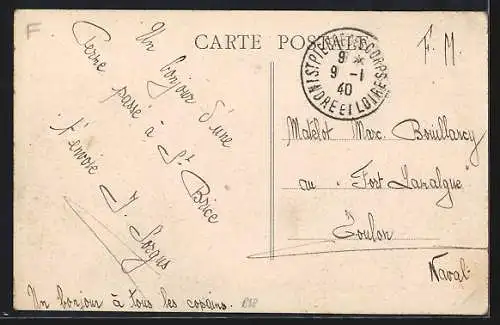 F
CARTE POSTALE
ST PIERRE DES CORPS
9 *
9 - 1
40
INDRE ET LOIRE
F. M.
Un bonjour d'une
passé à St Brice
t'envoie J.
Matelot Marc
au "Fort Lamalgue"
Toulon
Naval
Un bonjour à tous les copains.